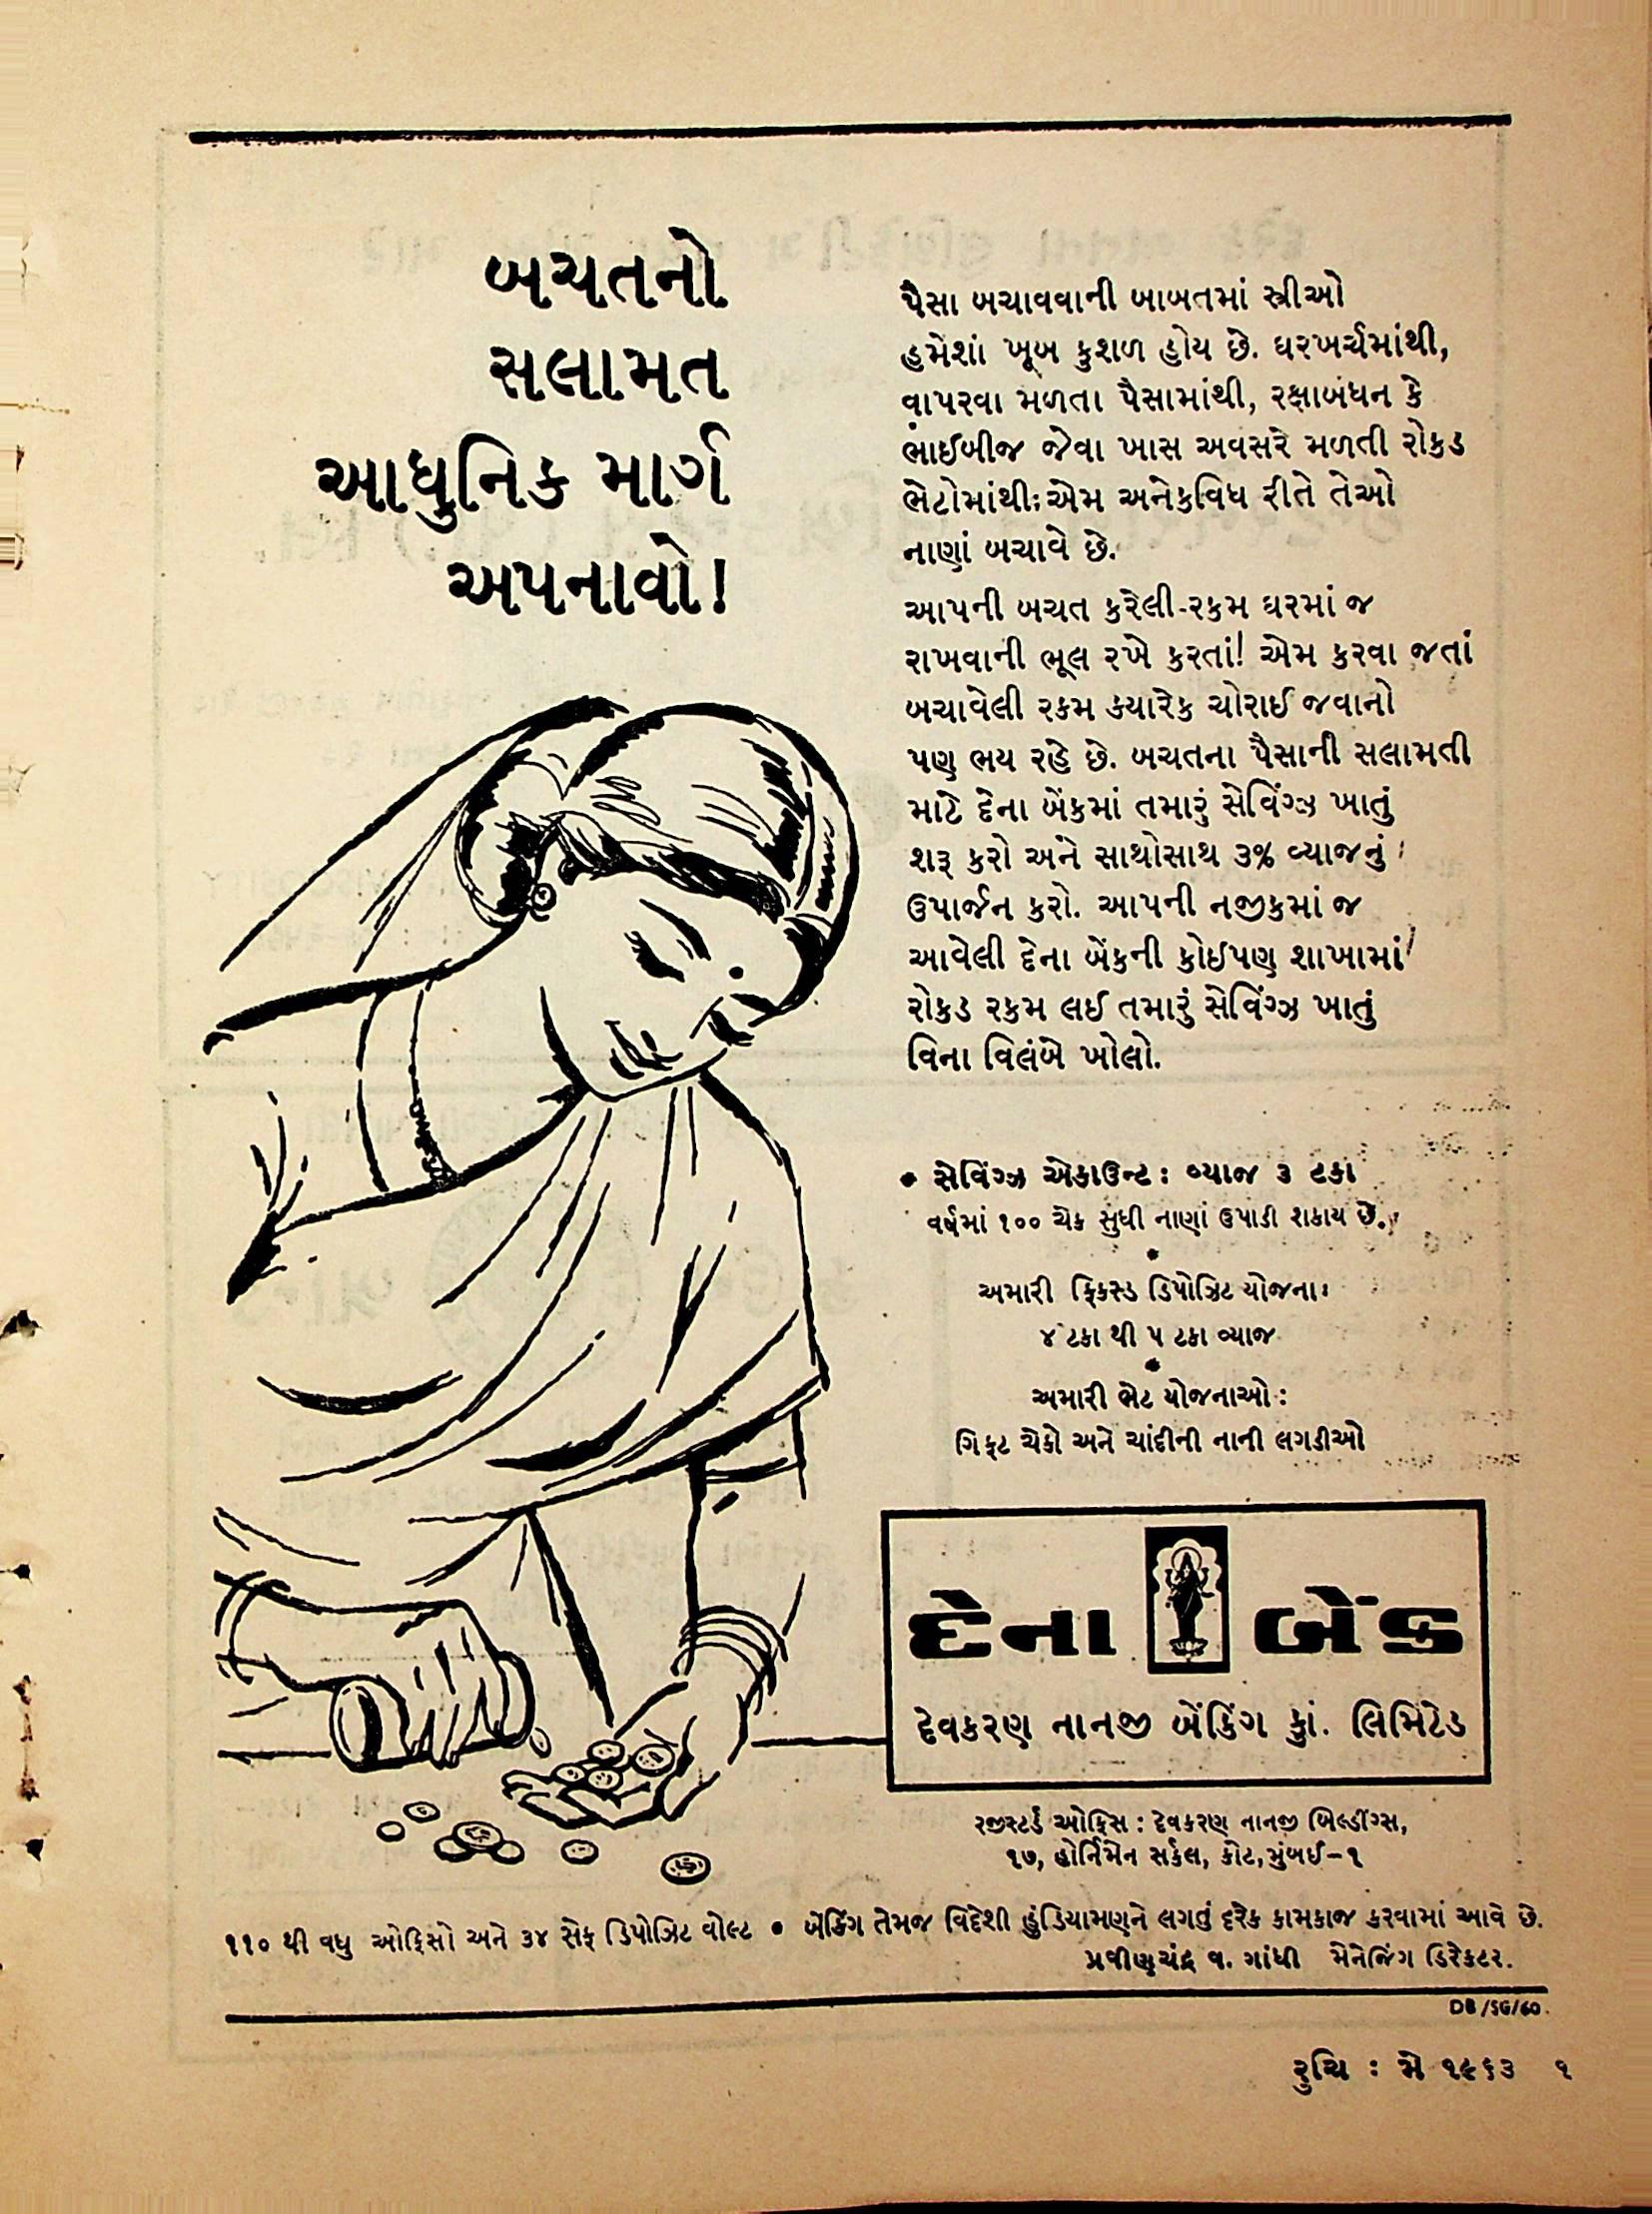 બચતનો
સલામત
આધુનિક માર્ગ
અપનાવો!
પૈસા બચાવવાની બાબતમાં સ્ત્રીઓ
હમેશાં ખૂબ કુશળ હોય છે. ઘરખર્ચમાંથી,
વાપરવા મળતા પૈસામાંથી, રક્ષાબંધન કે
ભાઈબીજ જેવા ખાસ અવસરે મળતી રોકડ
ભેટોમાંથી: એમ અનેકવિધ રીતે તેઓ
નાણાં બચાવે છે.
આપની બચત કરેલી-રકમ ઘરમાં જ
રાખવાની ભૂલ રખે કરતાં! એમ કરવા જતાં
બચાવેલી રકમ ક્યારેક ચોરાઈ જવાનો
પણ ભય રહે છે. બચતના પૈસાની સલામતી
માટે દેના બેંકમાં તમારું સેવિંગ્ઝ ખાતું
શરૂ કરો અને સાથોસાથ ૩% વ્યાજનું
ઉપાર્જન કરો. આપની નજીકમાં જ
આવેલી દેના બેંકની કોઈપણ શાખામાં
રોકડ રકમ લઈ તમારું સેવિંગ્ઝ ખાતું
વિના વિલંબે ખોલો.
• સેવિંગ્ઝ એકાઉન્ટ : વ્યાજ ૩ ટકા
વર્ષમાં ૧૦૦ ચેક સુધી નાણાં ઉપાડી શકાય છે.
•
અમારી ફિક્સ્ડ ડિપોઝિટ યોજના:
૪ ટકા થી ૫ ટકા વ્યાજ
•
અમારી ભેટ યોજનાઓ :
ગિફ્ટ ચેકો અને ચાંદીની નાની લગડીઓ
દેના બેંક
દેવકરણ નાનજી બેંકિંગ કાું. લિમિટેડ
રજીસ્ટર્ડ ઓફિસ : દેવકરણ નાનજી બિલ્ડીંગ્સ,
૧૭, હોર્નિમેન સર્કલ, કોટ, મુંબઈ-૧
૧૧૦ થી વધુ ઓફિસો અને ૩૪ સેફ ડિપોઝિટ વોલ્ટ • બેંકિંગ તેમજ વિદેશી હુંડિયામણને લગતું દરેક કામકાજ કરવામાં આવે છે.
પ્રવીણચંદ્ર વ. ગાંધી મેનેજિંગ ડિરેક્ટર.
DB/SG/60.
રુચિ : મે ૧૯૬૩ ૧